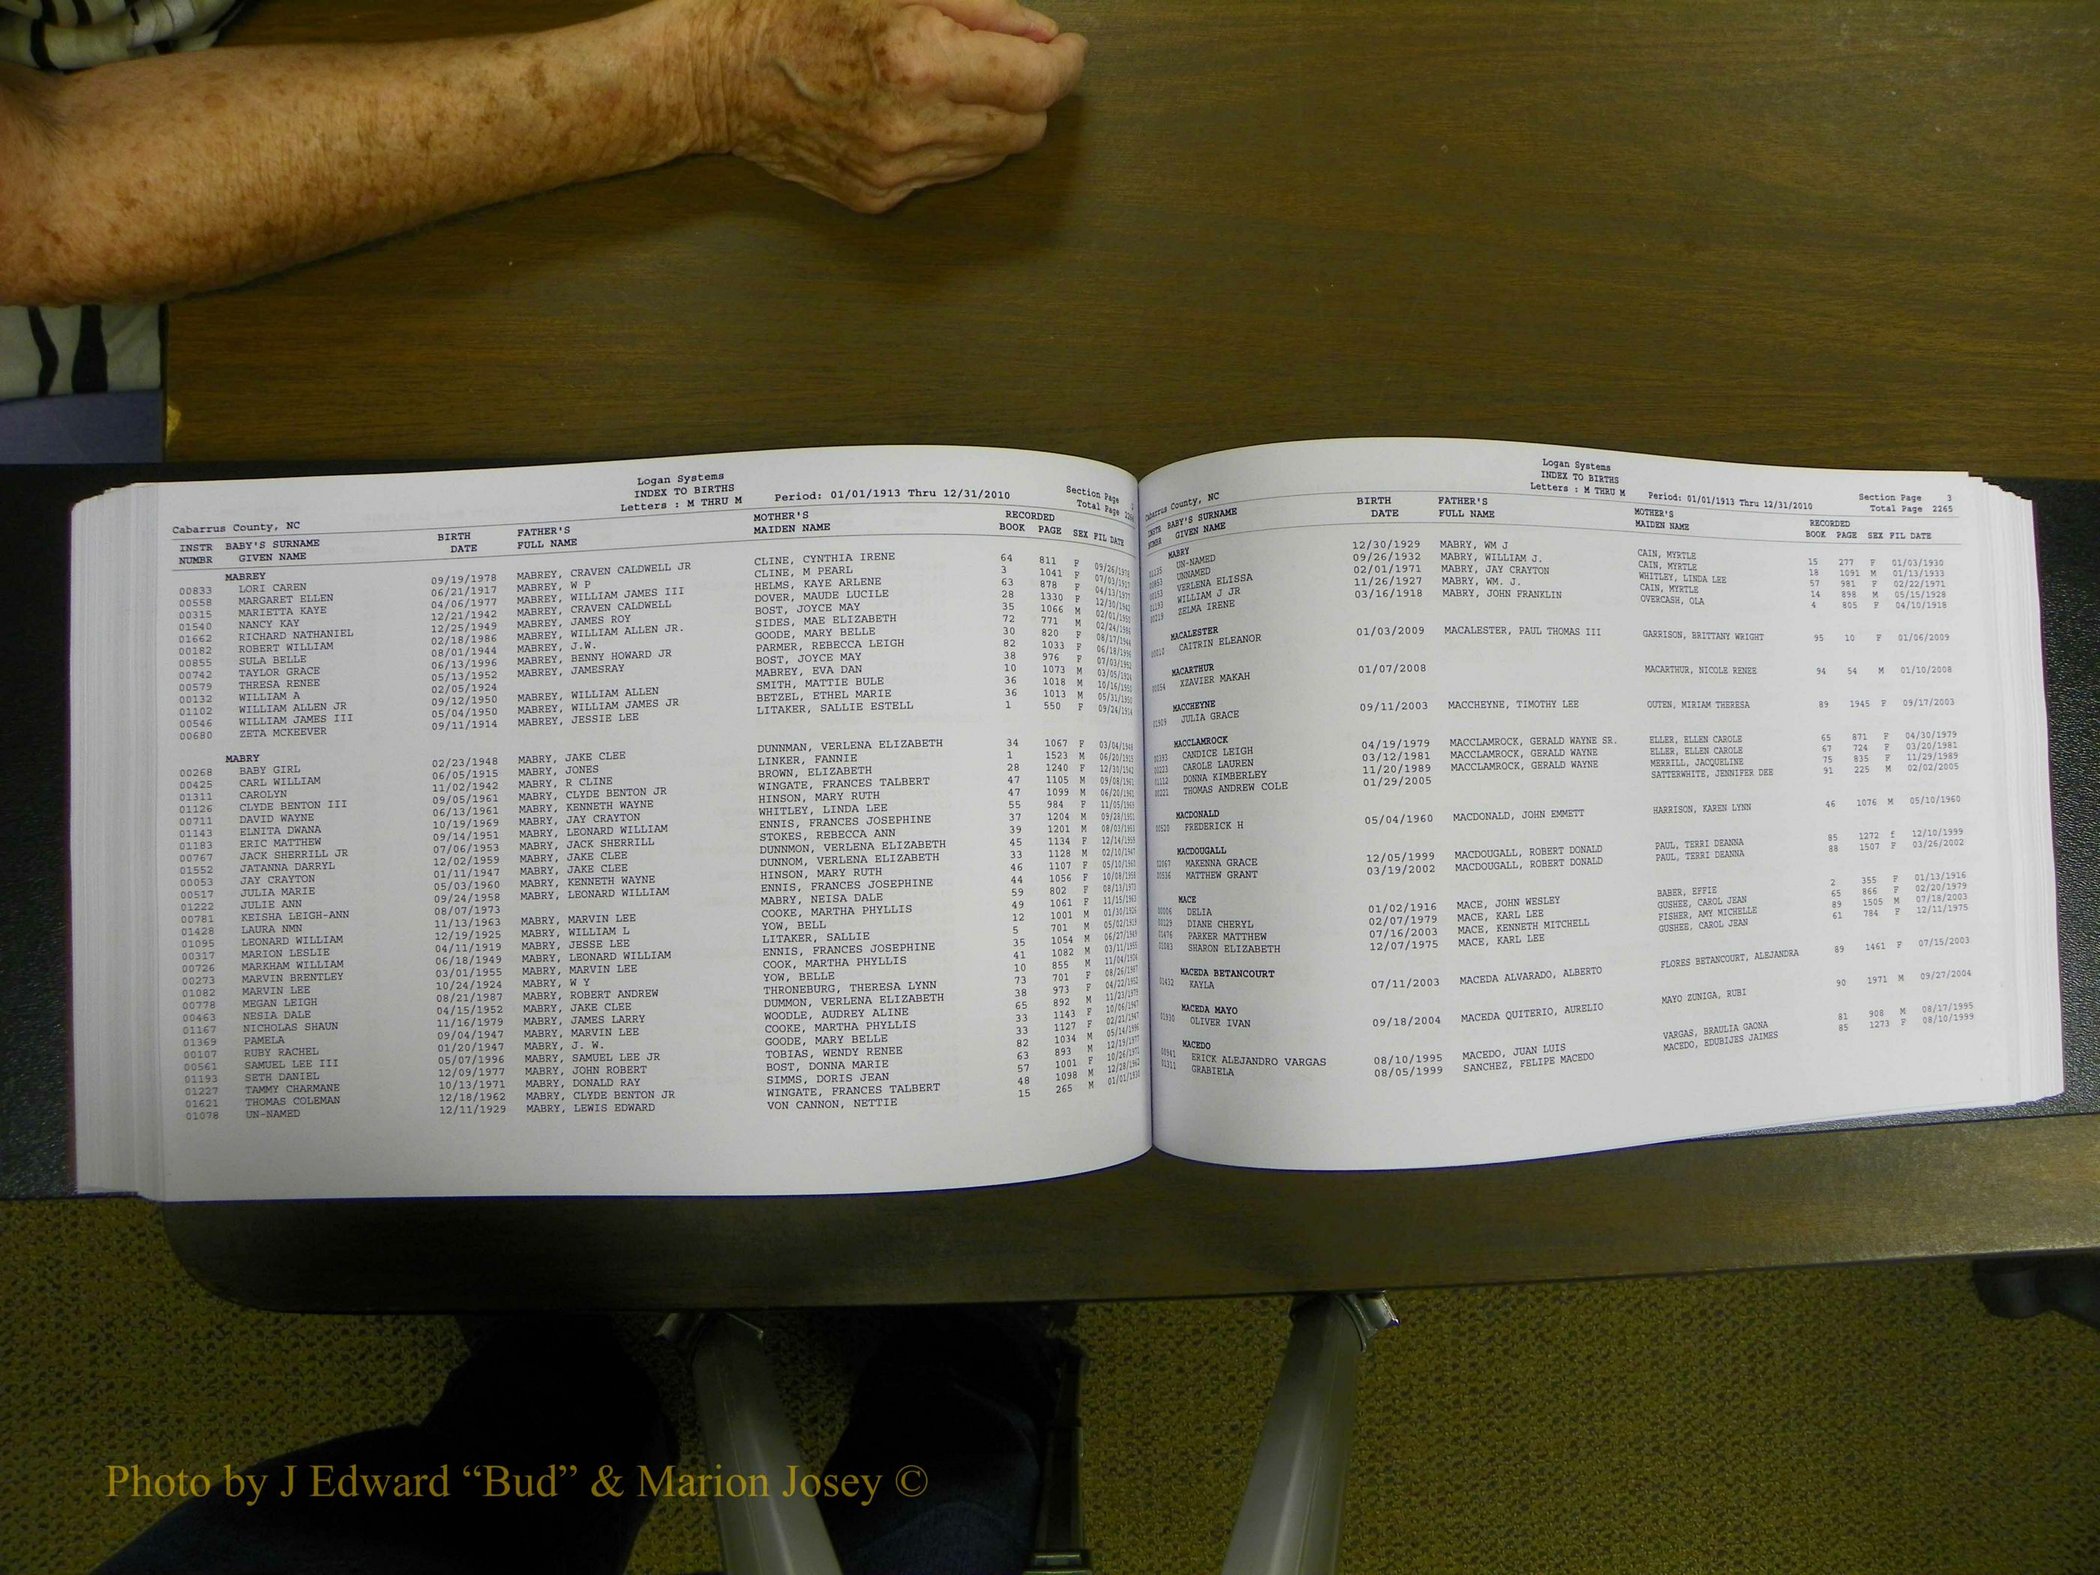 Logan Systems
INDEX TO BIRTHS
Letters : M THRU M
Period: 01/01/1913 Thru 12/31/2010
Section Page
Total Page
Cabarrus County, NC
INSTR BABY'S SURNAME BIRTH FATHER'S MOTHER'S RECORDED
NUMBR GIVEN NAME DATE FULL NAME MAIDEN NAME BOOK PAGE SEX FIL DATE
MABREY
00833 LORI CAREN 09/19/1978 MABREY, CRAVEN CALDWELL JR CLINE, CYNTHIA IRENE 64 811 F 09/26/1978
00558 MARGARET ELLEN 06/21/1917 MABREY, W P CLINE, M PEARL 3 1041 F 07/03/1917
00315 MARIETTA KAYE 04/06/1977 MABREY, WILLIAM JAMES III HELMS, KAYE ARLENE 63 878 F 04/13/1977
01540 NANCY KAY 12/21/1942 MABREY, CRAVEN CALDWELL DOVER, MAUDE LUCILE 28 1330 F 12/30/1942
01662 RICHARD NATHANIEL 12/25/1949 MABREY, JAMES ROY BOST, JOYCE MAY 35 1066 M 02/01/1950
00182 ROBERT WILLIAM 02/18/1986 MABREY, WILLIAM ALLEN JR. SIDES, MAE ELIZABETH 72 771 M 02/24/1986
00855 SULA BELLE 08/01/1944 MABREY, J.W. GOODE, MARY BELLE 30 820 F 08/17/1944
00742 TAYLOR GRACE 06/13/1996 MABREY, BENNY HOWARD JR PARMER, REBECCA LEIGH 82 1033 F 06/18/1996
00579 THRESA RENEE 05/13/1952 MABREY, JAMESRAY BOST, JOYCE MAY 38 976 F 07/03/1952
00132 WILLIAM A 02/05/1924 MABREY, EVA DAN 10 1073 M 03/05/1924
01102 WILLIAM ALLEN JR 09/12/1950 MABREY, WILLIAM ALLEN SMITH, MATTIE BULE 36 1018 M 10/16/1950
00546 WILLIAM JAMES III 05/04/1950 MABREY, WILLIAM JAMES JR BETZEL, ETHEL MARIE 36 1013 M 05/31/1950
00680 ZETA MCKEEVER 09/11/1914 MABREY, JESSIE LEE LITAKER, SALLIE ESTELL 1 550 F 09/24/1914
MABRY
00268 BABY GIRL 02/23/1948 MABRY, JAKE CLEE DUNNMAN, VERLENA ELIZABETH 34 1067 F 03/04/1948
00425 CARL WILLIAM 06/05/1915 MABRY, JONES LINKER, FANNIE 1 1523 M 06/20/1915
01311 CAROLYN 11/02/1942 MABRY, R CLINE BROWN, ELIZABETH 28 1240 F 12/30/1942
01126 CLYDE BENTON III 09/05/1961 MABRY, CLYDE BENTON JR WINGATE, FRANCES TALBERT 47 1105 M 09/08/1961
00711 DAVID WAYNE 06/13/1961 MABRY, KENNETH WAYNE HINSON, MARY RUTH 47 1099 M 06/20/1961
01143 ELNITA DWANA 10/19/1969 MABRY, JAY CRAYTON WHITLEY, LINDA LEE 55 984 F 11/05/1969
01183 ERIC MATTHEW 09/14/1951 MABRY, LEONARD WILLIAM ENNIS, FRANCES JOSEPHINE 37 1204 M 09/28/1951
00767 JACK SHERRILL JR 07/06/1953 MABRY, JACK SHERRILL STOKES, REBECCA ANN 39 1201 M 08/03/1953
01552 JATANNA DARRYL 12/02/1959 MABRY, JAKE CLEE DUNNMON, VERLENA ELIZABETH 45 1134 F 12/14/1959
00053 JAY CRAYTON 01/11/1947 MABRY, JAKE CLEE DUNNOM, VERLENA ELIZABETH 33 1128 M 02/10/1947
00517 JULIA MARIE 05/03/1960 MABRY, KENNETH WAYNE HINSON, MARY RUTH 46 1107 F 05/10/1960
01222 JULIE ANN 09/24/1958 MABRY, LEONARD WILLIAM ENNIS, FRANCES JOSEPHINE 44 1056 F 10/08/1958
00781 KEISHA LEIGH-ANN 08/07/1973 MABRY, NEISA DALE 59 802 F 08/13/1973
01428 LAURA NMN 11/13/1963 MABRY, MARVIN LEE COOKE, MARTHA PHYLLIS 49 1061 F 11/15/1963
01095 LEONARD WILLIAM 12/19/1925 MABRY, WILLIAM L YOW, BELL 12 1001 M 01/30/1926
00317 MARION LESLIE 04/11/1919 MABRY, JESSE LEE LITAKER, SALLIE 5 701 M 05/02/1919
00726 MARKHAM WILLIAM 06/18/1949 MABRY, LEONARD WILLIAM ENNIS, FRANCES JOSEPHINE 35 1054 M 06/27/1949
00273 MARVIN BRENTLEY 03/01/1955 MABRY, MARVIN LEE COOK, MARTHA PHYLLIS 41 1082 M 03/11/1955
01082 MARVIN LEE 10/24/1924 MABRY, W Y YOW, BELLE 10 855 M 11/04/1924
00778 MEGAN LEIGH 08/21/1987 MABRY, ROBERT ANDREW THRONEBURG, THERESA LYNN 73 701 F 08/26/1987
00463 NESIA DALE 04/15/1952 MABRY, JAKE CLEE DUMMON, VERLENA ELIZABETH 38 973 F 04/22/1952
01167 NICHOLAS SHAUN 11/16/1979 MABRY, JAMES LARRY WOODLE, AUDREY ALINE 65 892 M 11/23/1979
01369 PAMELA 09/04/1947 MABRY, MARVIN LEE COOKE, MARTHA PHYLLIS 33 1143 F 10/06/1947
00107 RUBY RACHEL 01/20/1947 MABRY, J. W. GOODE, MARY BELLE 33 1127 F 02/21/1947
00561 SAMUEL LEE III 05/07/1996 MABRY, SAMUEL LEE JR TOBIAS, WENDY RENEE 82 1034 M 05/14/1996
01193 SETH DANIEL 12/09/1977 MABRY, JOHN ROBERT BOST, DONNA MARIE 63 893 M 12/19/1977
01227 TAMMY CHARMANE 10/13/1971 MABRY, DONALD RAY SIMMS, DORIS JEAN 57 1001 F 10/26/1971
01621 THOMAS COLEMAN 12/18/1962 MABRY, CLYDE BENTON JR WINGATE, FRANCES TALBERT 48 1098 M 12/28/1962
01078 UN-NAMED 12/11/1929 MABRY, LEWIS EDWARD VON CANNON, NETTIE 15 265 M 01/01/1930
Logan Systems
INDEX TO BIRTHS
Letters : M THRU M
Period: 01/01/1913 Thru 12/31/2010
Section Page 3
Total Page 2265
Cabarrus County, NC
INSTR BABY'S SURNAME BIRTH FATHER'S MOTHER'S RECORDED
NUMBR GIVEN NAME DATE FULL NAME MAIDEN NAME BOOK PAGE SEX FIL DATE
MABRY
01135 UN-NAMED 12/30/1929 MABRY, WM J CAIN, MYRTLE 15 277 F 01/03/1930
00853 UNNAMED 09/26/1932 MABRY, WILLIAM J. CAIN, MYRTLE 18 1091 M 01/13/1933
00153 VERLENA ELISSA 02/01/1971 MABRY, JAY CRAYTON WHITLEY, LINDA LEE 57 981 F 02/22/1971
01193 WILLIAM J JR 11/26/1927 MABRY, WM. J. CAIN, MYRTLE 14 898 M 05/15/1928
00219 ZELMA IRENE 03/16/1918 MABRY, JOHN FRANKLIN OVERCASH, OLA 4 805 F 04/10/1918
MACALESTER
00010 CAITRIN ELEANOR 01/03/2009 MACALESTER, PAUL THOMAS III GARRISON, BRITTANY WRIGHT 95 10 F 01/06/2009
MACARTHUR
00054 XZAVIER MAKAH 01/07/2008 MACARTHUR, NICOLE RENEE 94 54 M 01/10/2008
MACCHEYNE
01909 JULIA GRACE 09/11/2003 MACCHEYNE, TIMOTHY LEE OUTEN, MIRIAM THERESA 89 1945 F 09/17/2003
MACCLAMROCK
00393 CANDICE LEIGH 04/19/1979 MACCLAMROCK, GERALD WAYNE SR. ELLER, ELLEN CAROLE 65 871 F 04/30/1979
00223 CAROLE LAUREN 03/12/1981 MACCLAMROCK, GERALD WAYNE ELLER, ELLEN CAROLE 67 724 F 03/20/1981
01112 DONNA KIMBERLEY 11/20/1989 MACCLAMROCK, GERALD WAYNE MERRILL, JACQUELINE 75 835 F 11/29/1989
00221 THOMAS ANDREW COLE 01/29/2005 SATTERWHITE, JENNIFER DEE 91 225 M 02/02/2005
MACDONALD
00520 FREDERICK H 05/04/1960 MACDONALD, JOHN EMMETT HARRISON, KAREN LYNN 46 1076 M 05/10/1960
MACDOUGALL
12067 MAKENNA GRACE 12/05/1999 MACDOUGALL, ROBERT DONALD PAUL, TERRI DEANNA 85 1272 f 12/10/1999
00536 MATTHEW GRANT 03/19/2002 MACDOUGALL, ROBERT DONALD PAUL, TERRI DEANNA 88 1507 F 03/26/2002
MACE
00006 DELIA 01/02/1916 MACE, JOHN WESLEY BABER, EFFIE 2 355 F 01/13/1916
00129 DIANE CHERYL 02/07/1979 MACE, KARL LEE GUSHEE, CAROL JEAN 65 866 F 02/20/1979
01476 PARKER MATTHEW 07/16/2003 MACE, KENNETH MITCHELL FISHER, AMY MICHELLE 89 1505 M 07/18/2003
01083 SHARON ELIZABETH 12/07/1975 MACE, KARL LEE GUSHEE, CAROL JEAN 61 784 F 12/11/1975
MACEDA BETANCOURT
01432 KAYLA 07/11/2003 MACEDA ALVARADO, ALBERTO FLORES BETANCOURT, ALEJANDRA 89 1461 F 07/15/2003
MACEDA MAYO
01930 OLIVER IVAN 09/18/2004 MACEDA QUITERIO, AURELIO MAYO ZUNIGA, RUBI 90 1971 M 09/27/2004
MACEDO
00941 ERICK ALEJANDRO VARGAS 08/10/1995 MACEDO, JUAN LUIS VARGAS, BRAULIA GAONA 81 908 M 08/17/1995
01311 GRABIELA 08/05/1999 SANCHEZ, FELIPE MACEDO MACEDO, EDUBIJES JAIMES 85 1273 F 08/10/1999
Photo by J Edward “Bud” & Marion Josey ©